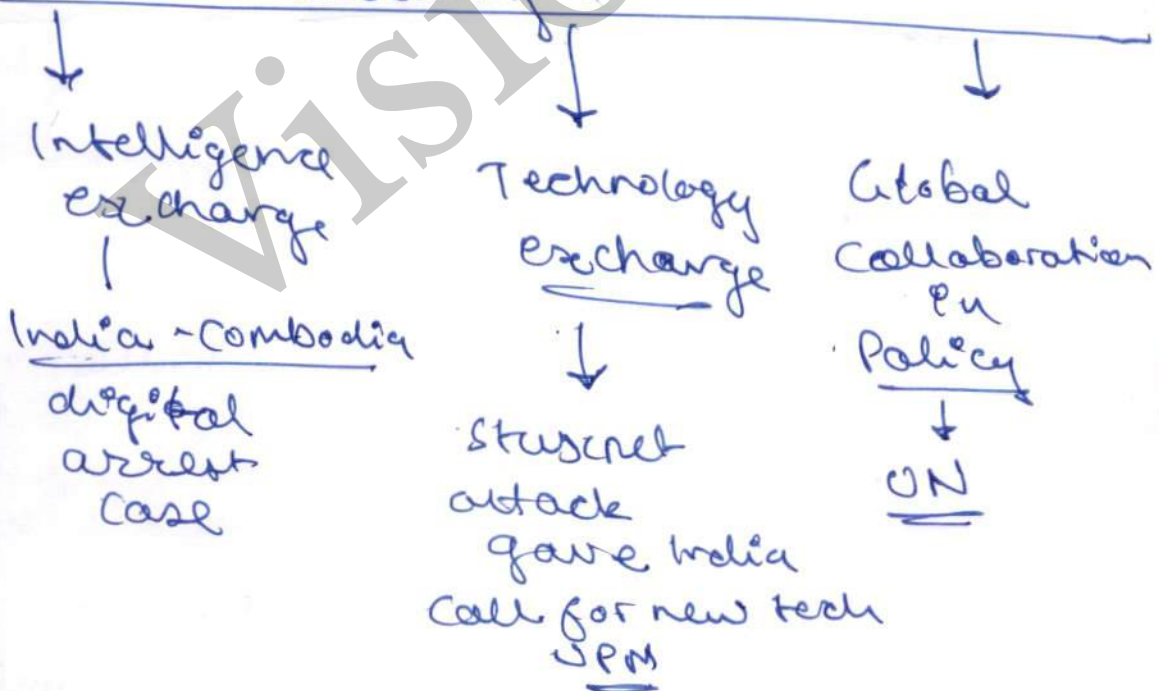 Intelligence
exchange
India - Combodia
digital
arrest
case
Technology
exchange
Stuxnet
attack
gave India
call for new tech
Global
Collaboration
in
Policy
UN